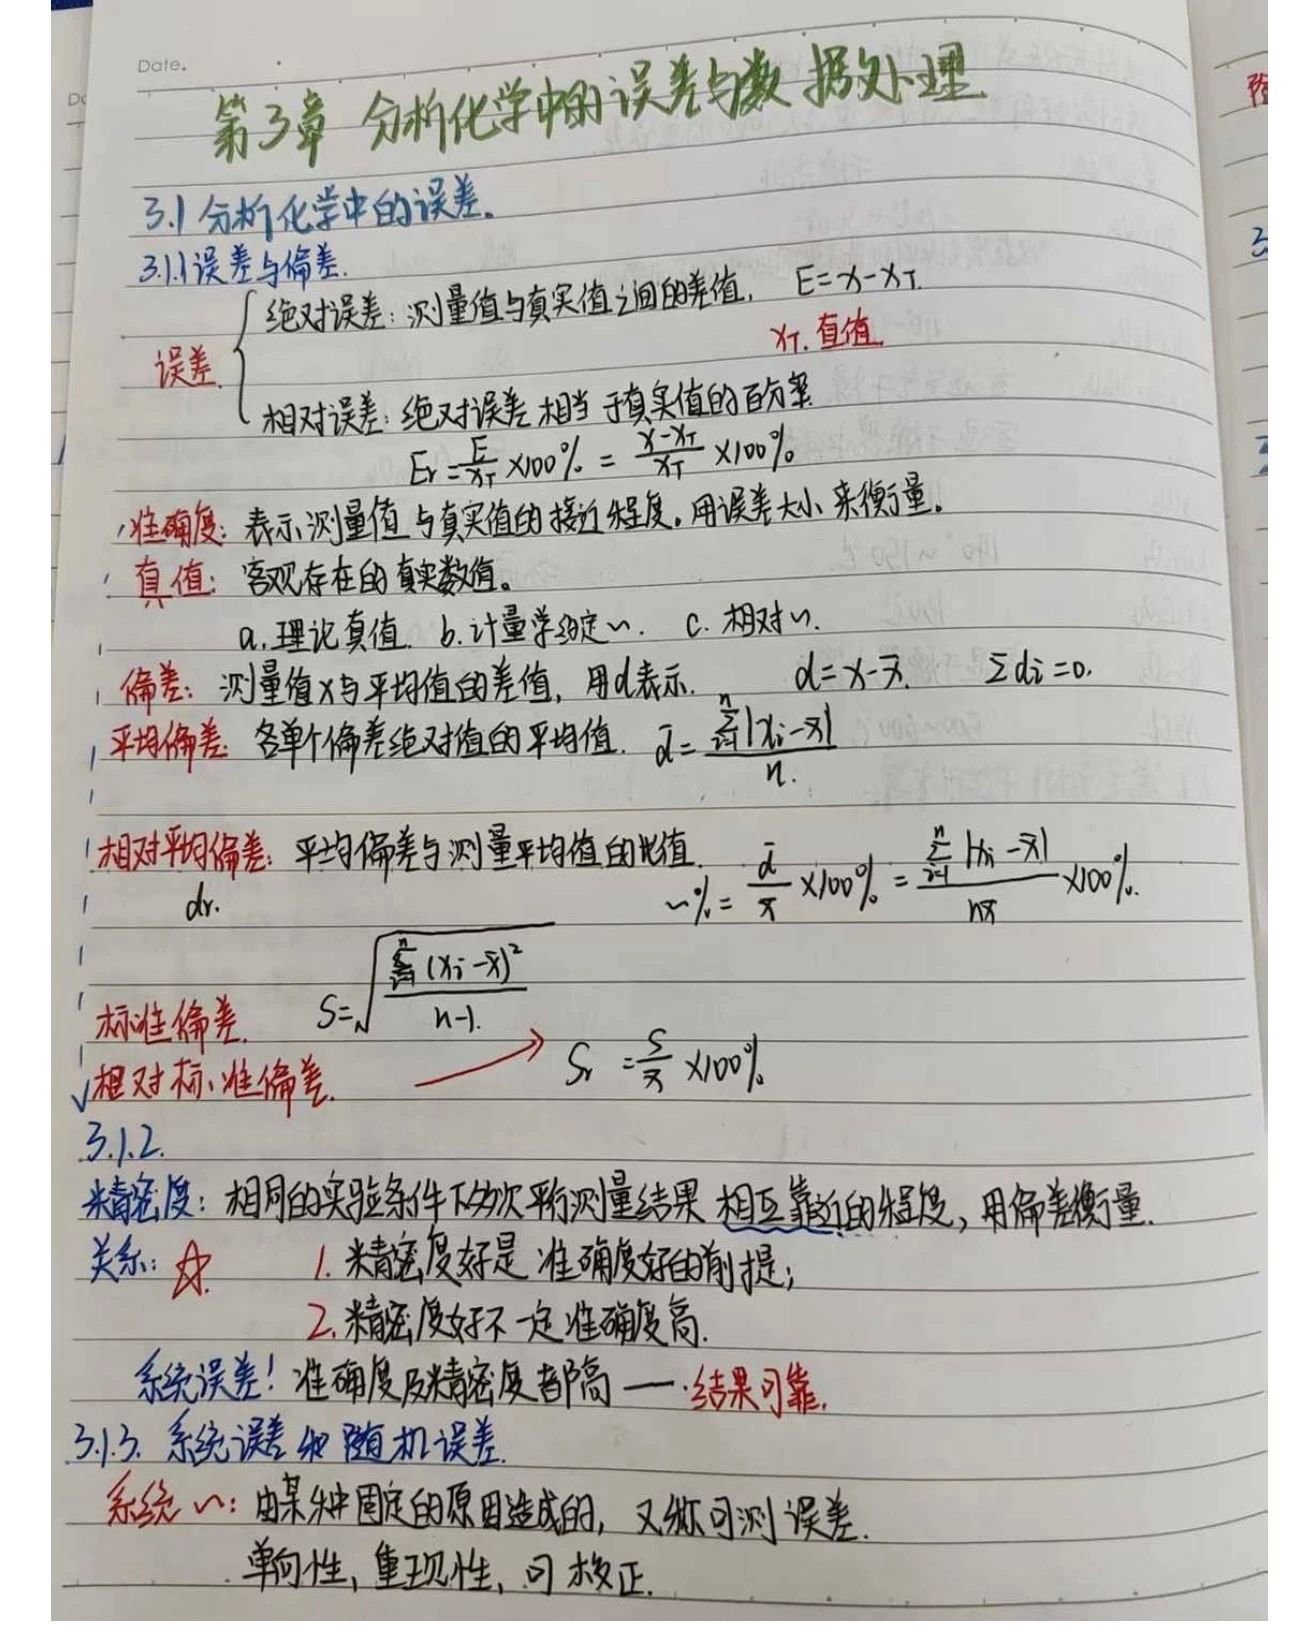 Date.
第3章 分析化学中的误差与数据处理
3.1 分析化学中的误差.
3.1.1 误差与偏差.
绝对误差: 测量值与真实值之间的差值, E=x-x_T.
x_T. 真值.
误差.
相对误差: 绝对误差相当于真实值的百分率
Er=E/x_T ×100% = (x-x_T)/x_T ×100%
准确度: 表示测量值与真实值的接近程度。用误差大小来衡量。
真值: 客观存在的真实数值。
a.理论真值. b.计量学约定~. c.相对~.
偏差: 测量值x与平均值的差值, 用d表示. d=x-x̄. Σdi=0.
平均偏差: 各单个偏差绝对值的平均值. d̄=Σ(i=1→n)|xi-x̄|/n.
相对平均偏差: 平均偏差与测量平均值的比值.
dr. ~%=d̄/x̄ ×100% = Σ(i=1→n)|xi-x̄|/(nx̄) ×100%.
标准偏差. S=√(Σ(i=1→n)(xi-x̄)²/(n-1.))
相对标准偏差. → Sr =S/x̄ ×100%
3.1.2.
精密度: 相同的实验条件下多次平行测量结果相互靠近的程度, 用偏差衡量.
关系: ☆. 1. 精密度好是准确度好的前提;
2. 精密度好不一定准确度高.
系统误差! 准确度及精密度都高 — 结果可靠.
3.1.3. 系统误差和随机误差.
系统~: 由某种固定的原因造成的, 又称可测误差.
单向性, 重现性, 可校正.